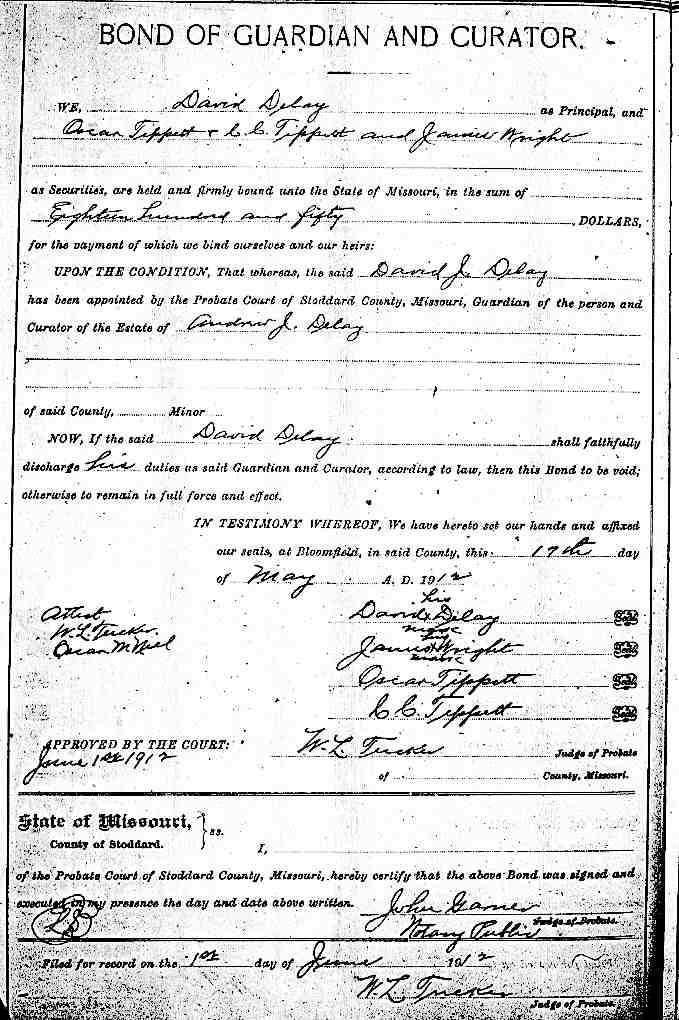 BOND OF GUARDIAN AND CURATOR.
WE, David Delay as Principal, and
Oscar Tippett & C. C. Tippett and James Wright
as Securities, are held and firmly bound unto the State of Missouri, in the sum of
Eighteen hundred and fifty DOLLARS,
for the payment of which we bind ourselves and our heirs:
UPON THE CONDITION, That whereas, the said David J. Delay
has been appointed by the Probate Court of Stoddard County, Missouri, Guardian of the person and
Curator of the Estate of Andrew J. Delay
of said County, Minor
NOW, If the said David Delay shall faithfully
discharge his duties as said Guardian and Curator, according to law, then this Bond to be void;
otherwise to remain in full force and effect.
IN TESTIMONY WHEREOF, We have hereto set our hands and affixed
our seals, at Bloomfield, in said County, this 17th day
of May A. D. 1912
Attest his
W. L. Tucker. David x Delay Seal
Oscar McNeel mark
his
James x Wright Seal
mark
Oscar Tippett Seal
C. C. Tippett Seal
APPROVED BY THE COURT: W. L. Tucker Judge of Probate
June 1st 1912
of County, Missouri.
State of Missouri,
County of Stoddard. ss.
I,
of the Probate Court of Stoddard County, Missouri, hereby certify that the above Bond was signed and
executed in my presence the day and date above written. John Garner
LS Notary Public Judge of Probate.
Filed for record on the 1st day of June 1912
W. L. Tucker
Judge of Probate.